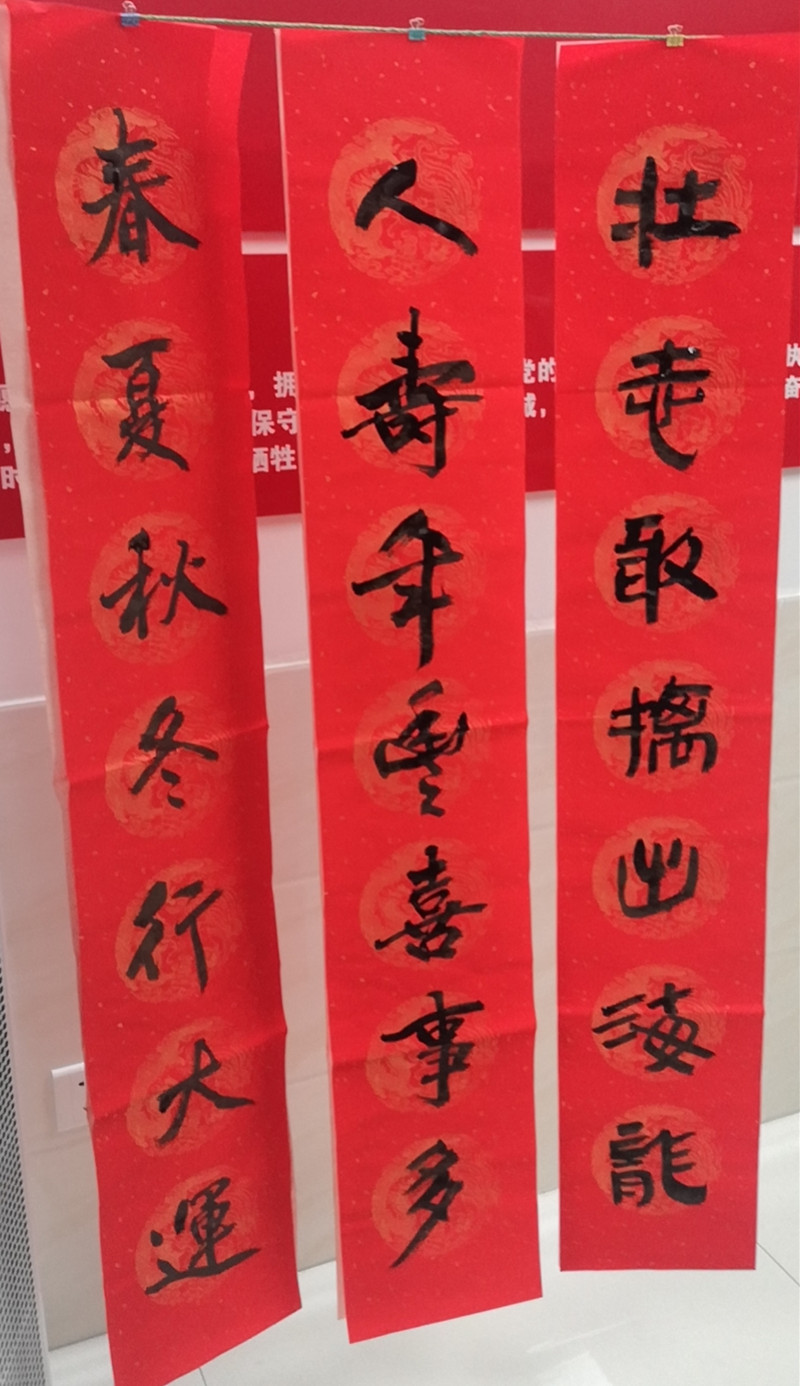 壮志敢擒出海龍
人壽年豐喜事多
春夏秋冬行大運
，拥
保守
牺牲
党的
执
奋
时